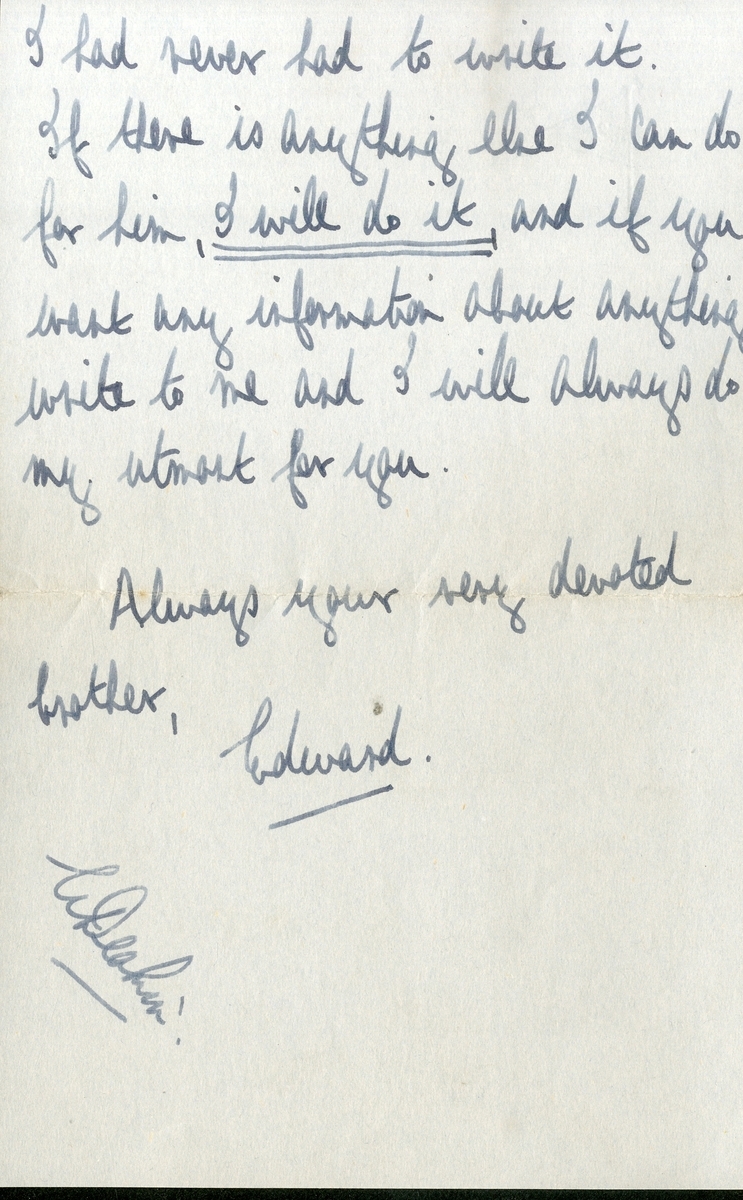 I had never had to write it.
If there is anything else I can do
for him, I will do it, and if you
want any information about anything
write to me and I will always do
my utmost for you.
Always your very devoted
brother,
Edward.